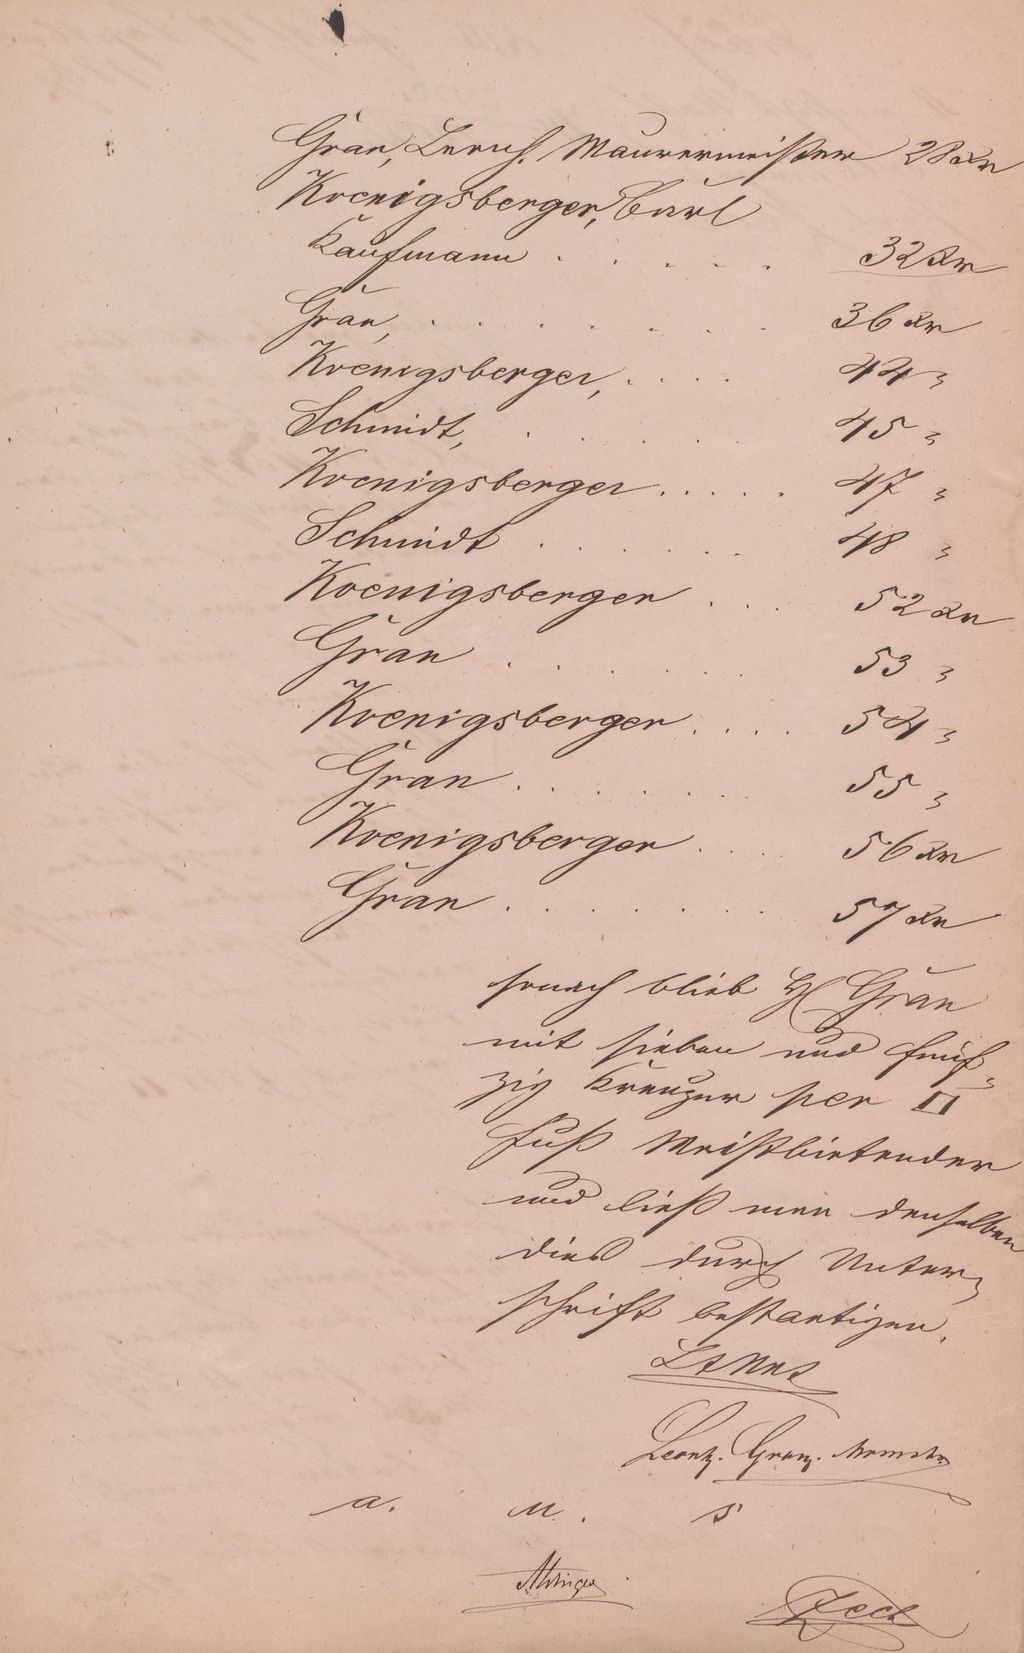 Gran, Leonh. Maurermeister 28 Kr
Koenigsberger, Carl
Kaufmann . . . . . 32 Kr
Gran, . . . . . . . 36 Kr
Koenigsberger, . . . . 44 "
Schmidt, . . . . . 45 "
Koenigsberger . . . . . 47 "
Schmidt . . . . . . 48 "
Koenigsberger . . . 52 Kr
Gran . . . . . . 53 "
Koenigsberger . . . . 54 "
Gran . . . . . . . 55 "
Koenigsberger . . . . 56 Kr
Gran . . . . . . . 57 Kr
sonach blieb H Gran
mit sieben und fünf-
zig Kreuzer per □
Fuß Meistbietender
und ließ man denselben
dies durch Unter-
schrift bestaetigen.
Gran.
a. u. s
Zech